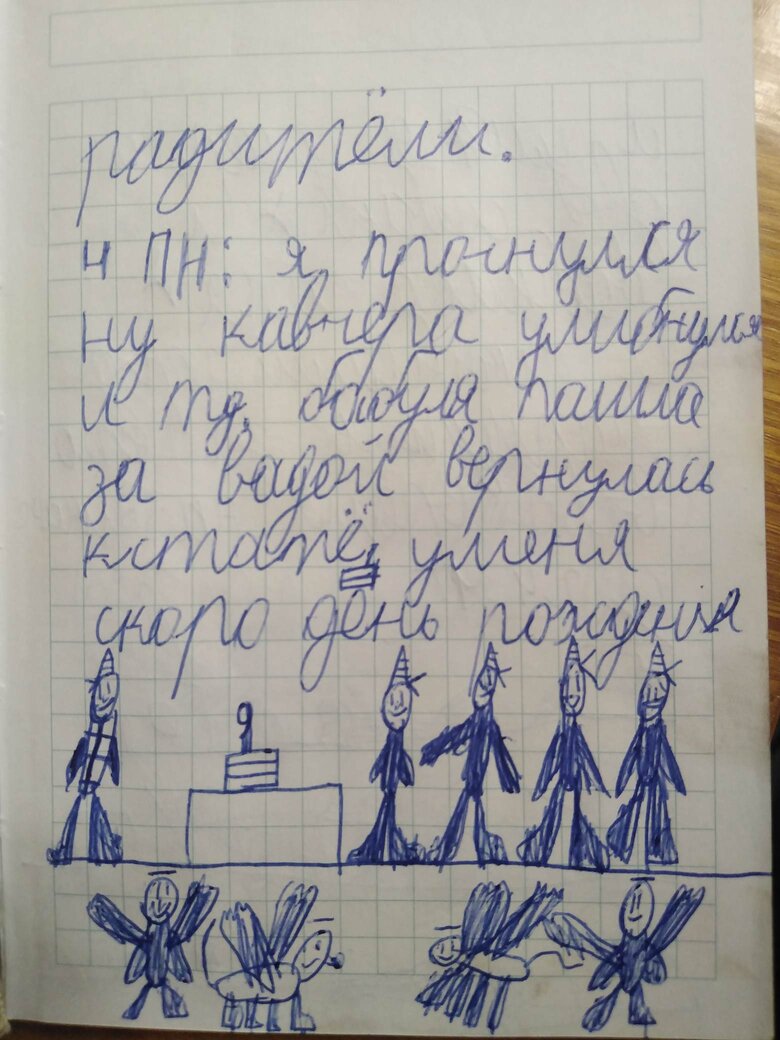 радитёли.
4 ПН: я проснулся
ну кавчера улибнулся
и тд. бабуля пашла
за вадой вернулась
кстатё, уменя
скоро день рождения
9